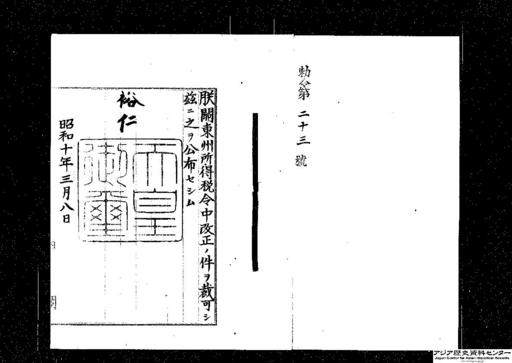 勅令第二十三號
朕關東州所得税令中改正ノ件ヲ裁可シ
茲ニ之ヲ公布セシム
裕仁
天皇御璽
昭和十年三月八日
アジア歴史資料センター
Japan Center for Asian Historical Records